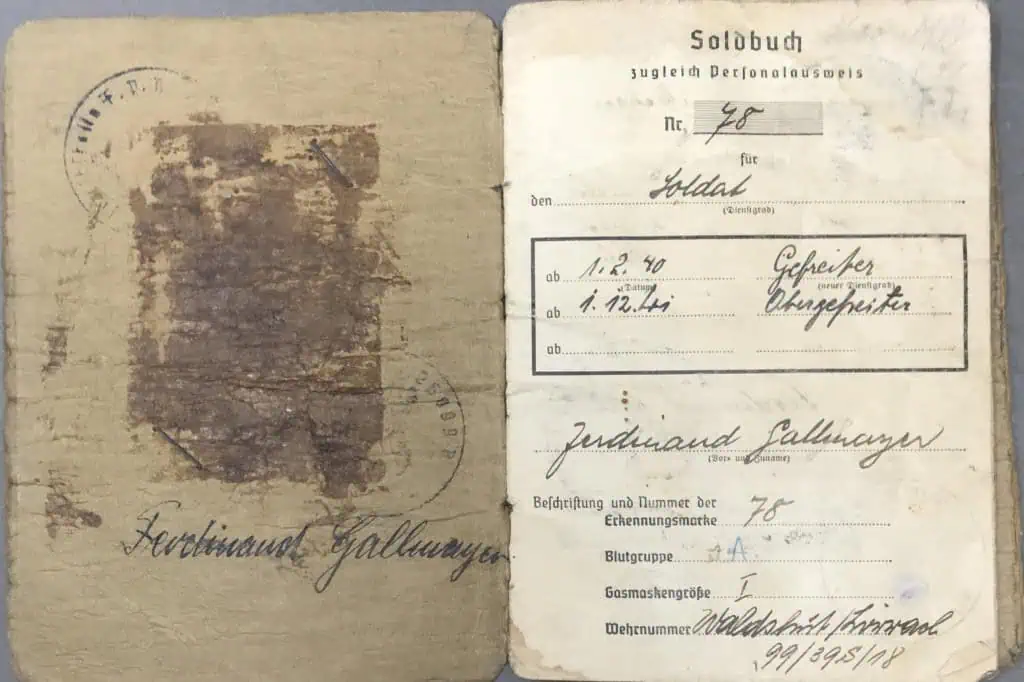 Ferdinand Gallmayer
Soldbuch
zugleich Personalausweis
Nr. 78
für
den Soldat
(Dienstgrad)
ab 1.2.40 Gefreiter
(Datum) (neuer Dienstgrad)
ab 1.12. Obergefreiter
ab
Ferdinand Gallmayer
(Vor- und Zuname)
Beschriftung und Nummer der
Erkennungsmarke 78
Blutgruppe A
Gasmaskengröße I
Wehrnummer Waldshut/Lörrach
99/39S/18